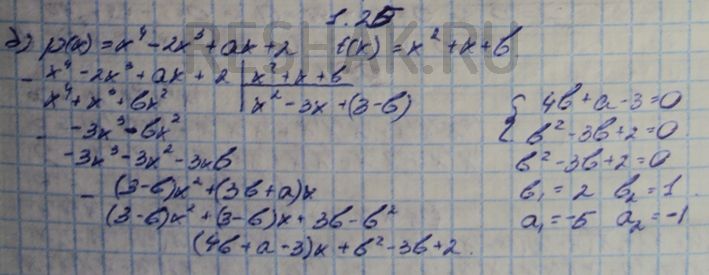 1.25
б) p(x) = x⁴ - 2x³ + ax + 2   t(x) = x² + x + b
- x⁴ - 2x³ + ax + 2 | x² + x + b
x⁴ + x³ + bx² | x² - 3x + (3 - b)
- -3x³ - bx²
-3x³ - 3x² - 3xb
- (3-b)x² + (3b+a)x
(3-b)x² + (3-b)x + 3b - b²
(4b + a - 3)x + b² - 3b + 2.
{ 4b + a - 3 = 0
b² - 3b + 2 = 0
b² - 3b + 2 = 0
b₁ = 2   b₂ = 1
a₁ = -5   a₂ = -1
RESHAK.RU